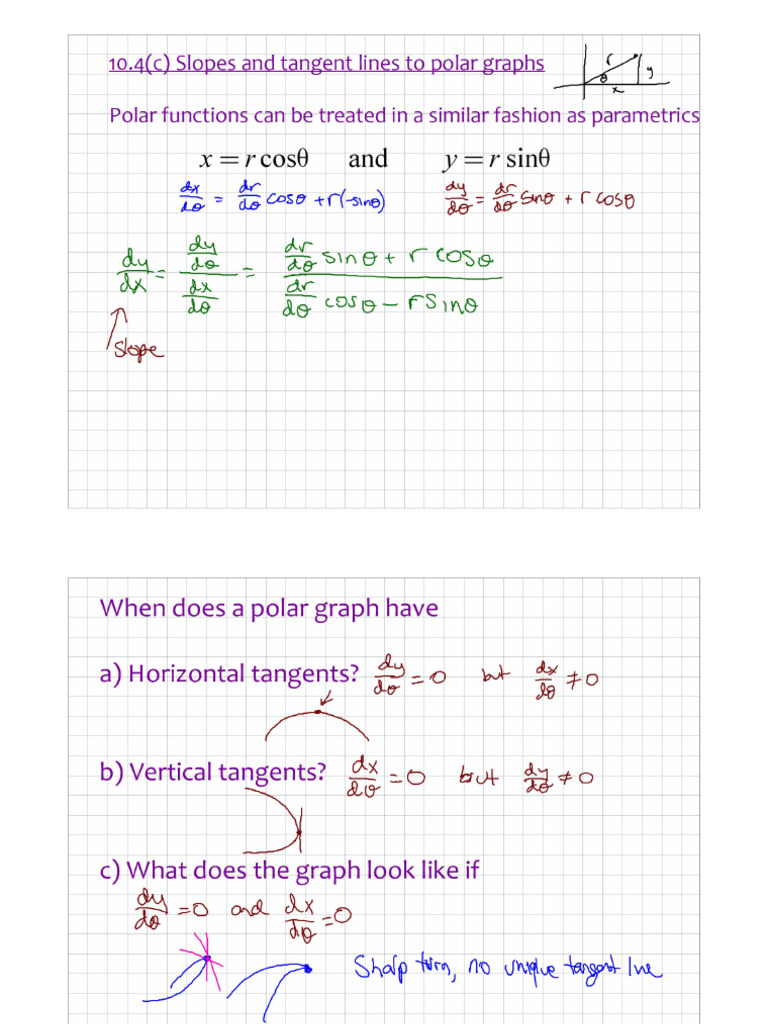 10.4(c) Slopes and tangent lines to polar graphs
r
θ
y
x
Polar functions can be treated in a similar fashion as parametrics
x = r cosθ and y = r sinθ
dx/dθ = dr/dθ cosθ + r(-sinθ) dy/dθ = dr/dθ sinθ + r cosθ
dy/dx = (dy/dθ)/(dx/dθ) = (dr/dθ sinθ + r cosθ)/(dr/dθ cosθ - r sinθ)
slope
When does a polar graph have
a) Horizontal tangents? dy/dθ = 0 but dx/dθ ≠ 0
b) Vertical tangents? dx/dθ = 0 but dy/dθ ≠ 0
c) What does the graph look like if
dy/dθ = 0 and dx/dθ = 0
Sharp turn, no unique tangent line